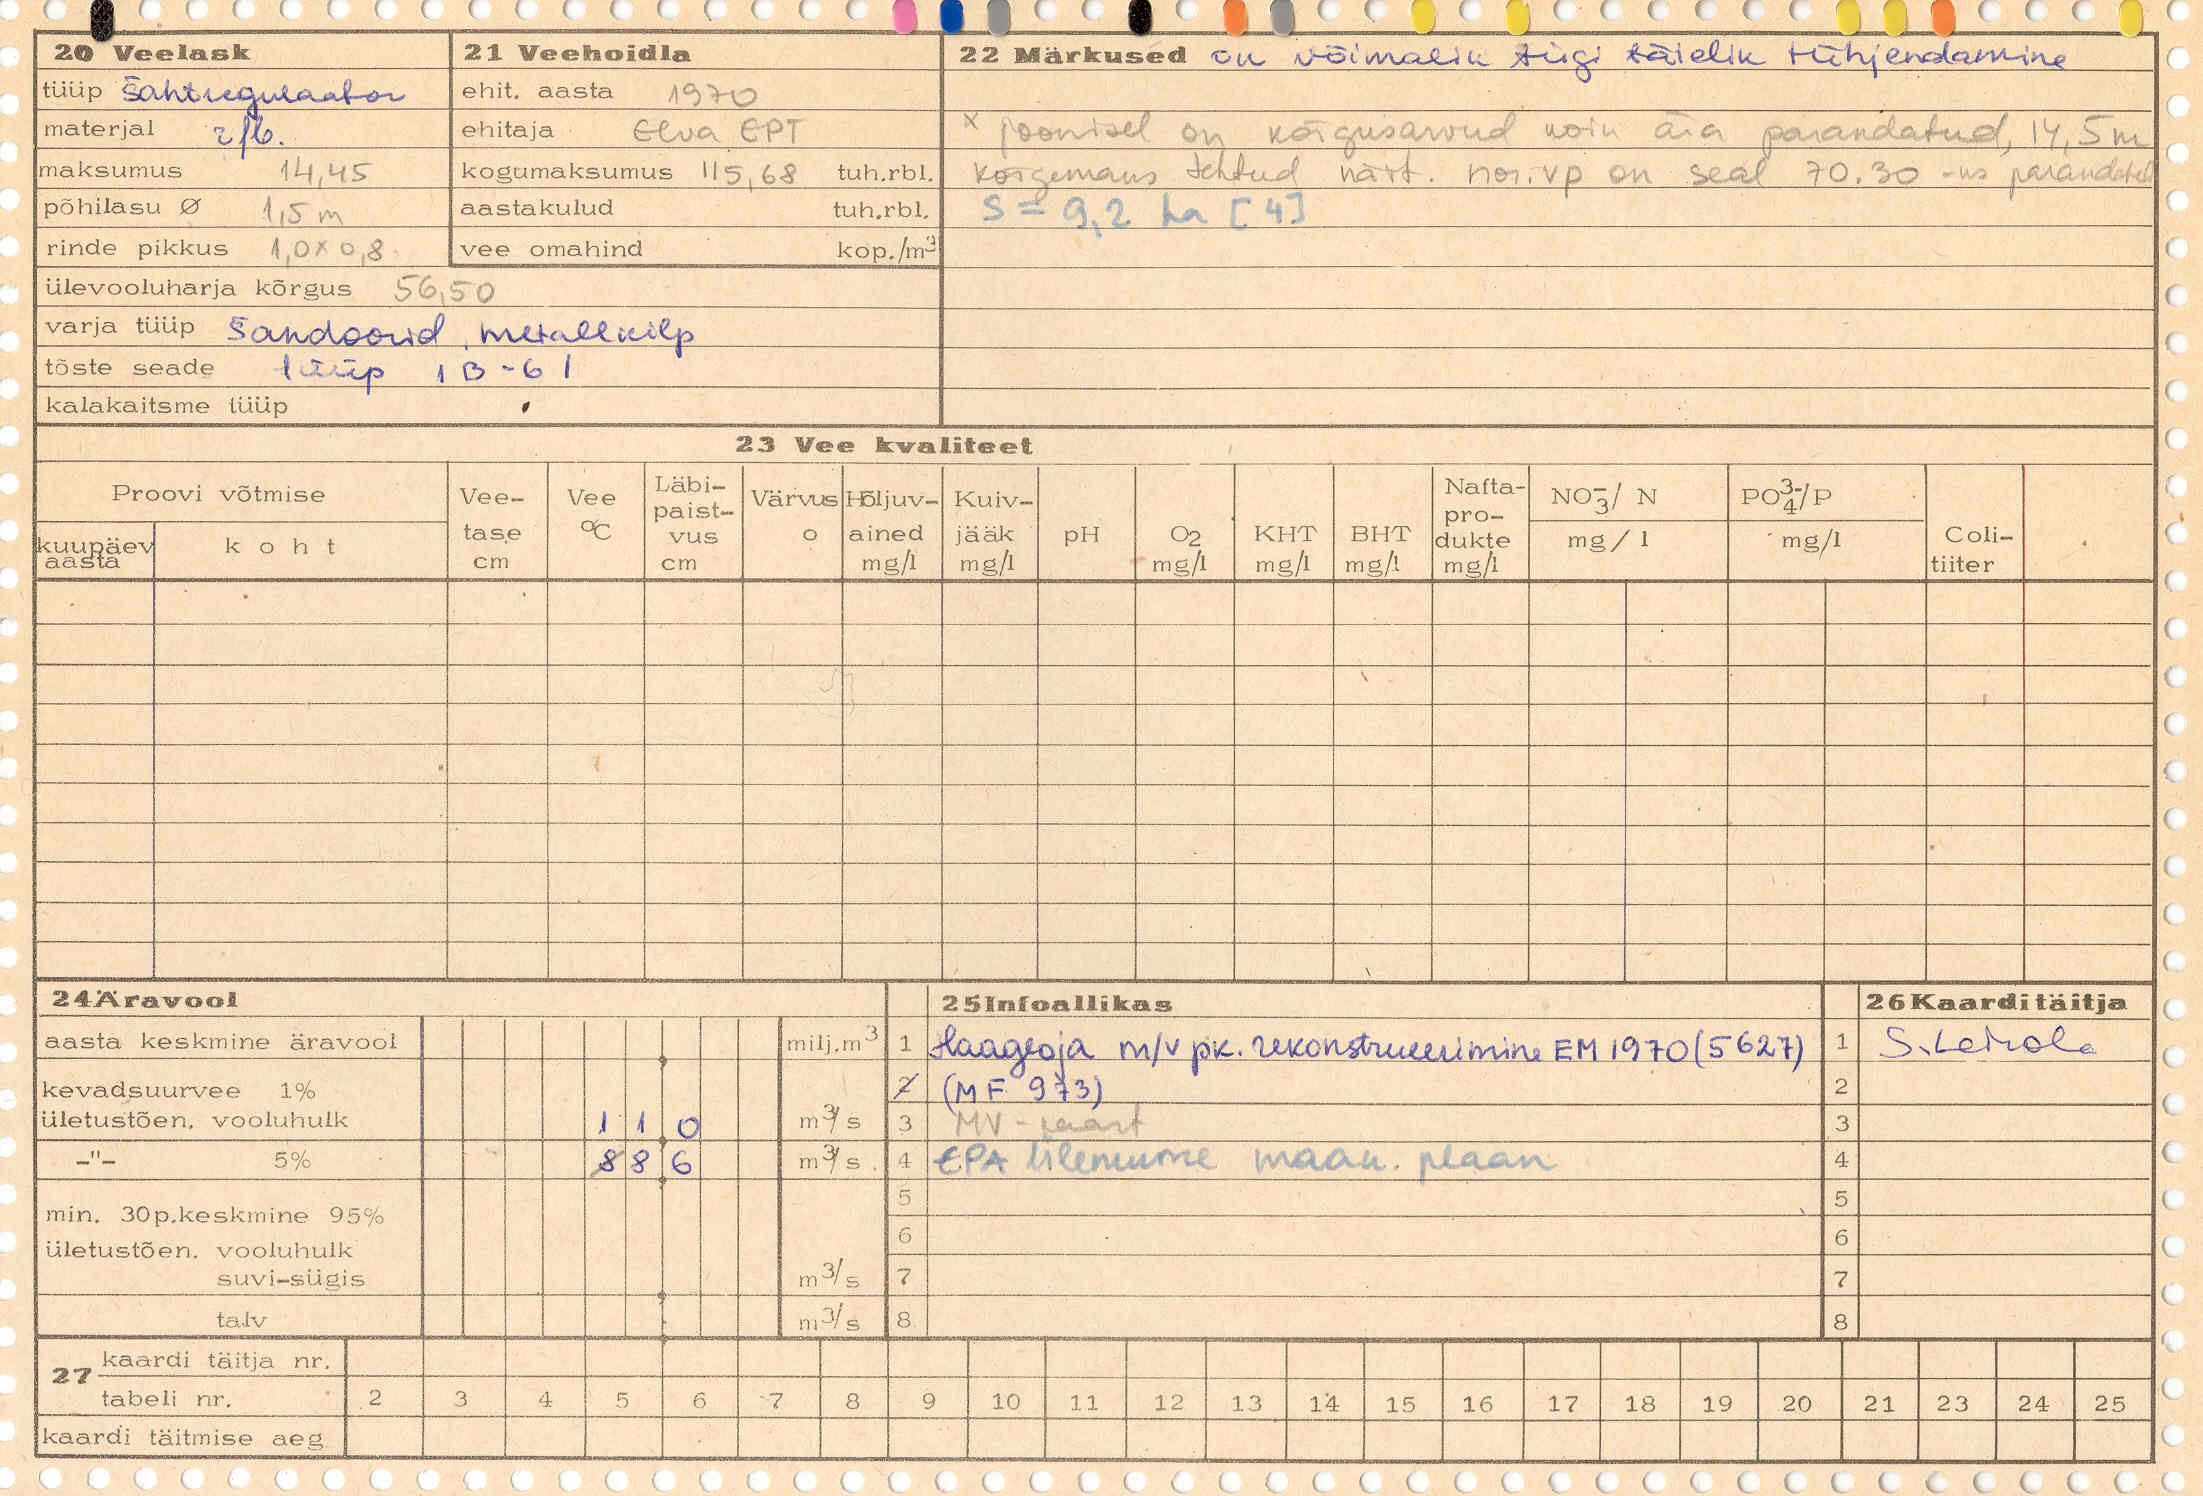 20 Veelask
tüüp Šahtregulaator
materjal r/b.
maksumus 14,45
põhilasu Ø 1,5 m
rinde pikkus 1,0 x 0,8
ülevooluharja kõrgus 56,50
varja tüüp Šandoorid, metallkilp
tõste seade tüüp 1B-61
kalakaitsme tüüp
21 Veehoidla
ehit. aasta 1970
ehitaja Elva EPT
kogumaksumus 115,68 tuh.rbl.
aastakulud tuh.rbl.
vee omahind kop./m3
22 Märkused on võimalik tiigi täielik tühjendamine
x joonisel on kõrgusarvud koik ära parandatud, 14,5 m
kõrgemaks tehtud näit. nor.vp on seal 70.30 -ks parandatud
S = 9,2 ha [4]
23 Vee kvaliteet
Proovi võtmise
kuupäev aasta
koht
Vee-tase cm
Vee °C
Läbi-paist-vus cm
Värvus o
Hõljuv-ained mg/l
Kuiv-jääk mg/l
pH
O2 mg/l
KHT mg/l
BHT mg/l
Nafta-pro-dukte mg/l
NO3-/ N mg/l
PO4 3-/P mg/l
Coli-tiiter
24 Äravool
aasta keskmine äravool milj.m3
kevadsuurvee 1%
ületustõen. vooluhulk 1 1 0 m3/s
-"- 5% 8 8 6 m3/s
min. 30p.keskmine 95%
ületustõen. vooluhulk
suvi-sügis m3/s
talv m3/s
25 Infoallikas
1 Haageoja m/v pk. rekonstrueerimine EM 1970 (5627)
2 (MF 973)
3 MV - kaart
4 EPA Ülenurme maak. plaan
5
6
7
8
26 Kaardi täitja
1
2
3
4
5
6
7
8
27 kaardi täitja nr.
tabeli nr. 2 3 4 5 6 7 8 9 10 11 12 13 14 15 16 17 18 19 20 21 23 24 25
kaardi täitmise aeg